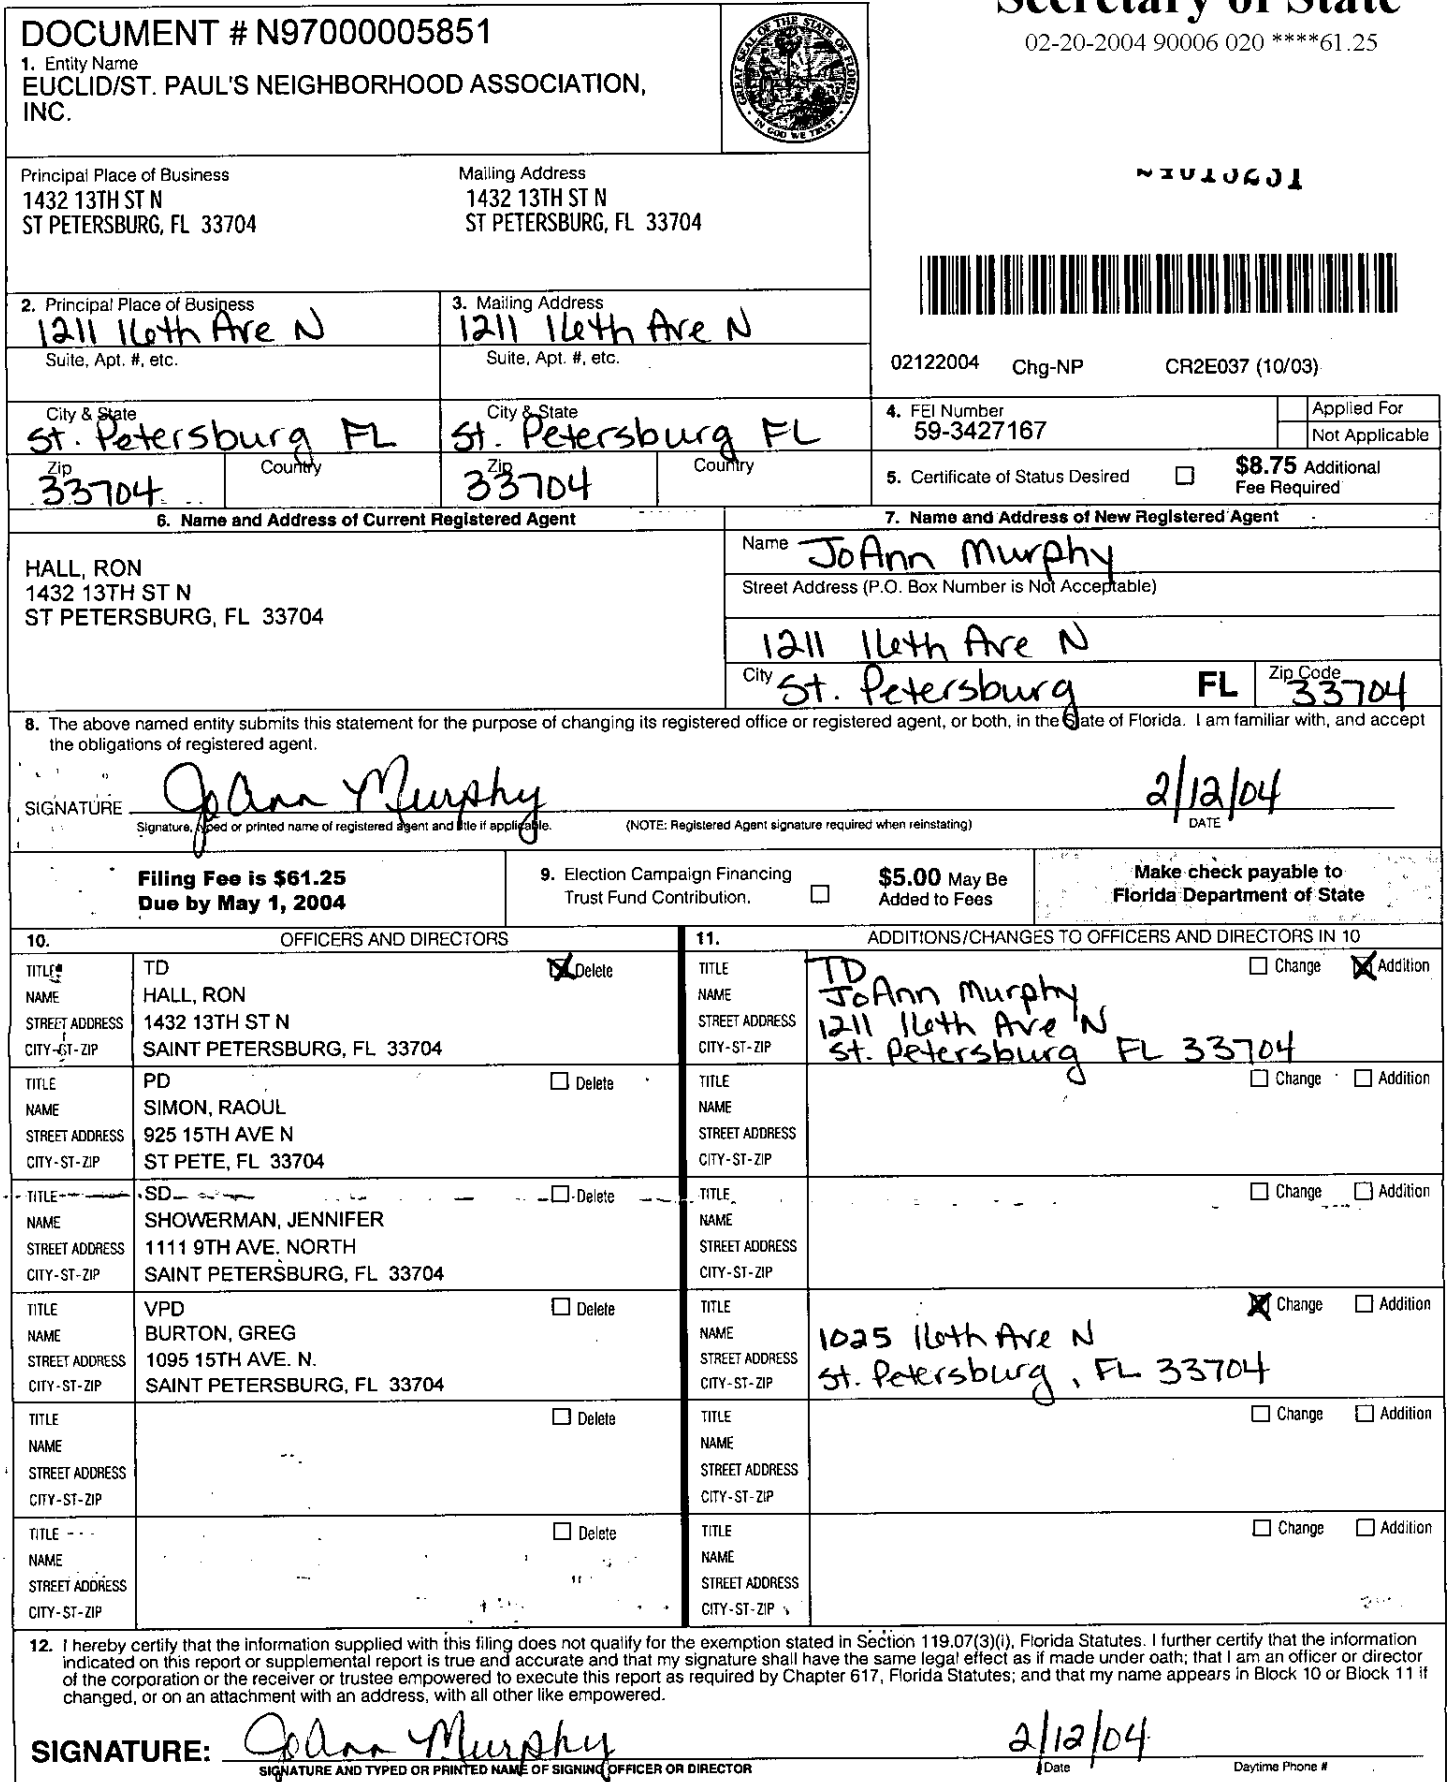 Secretary of State
02-20-2004 90006 020 ****61.25
DOCUMENT # N97000005851
1. Entity Name
EUCLID/ST. PAUL'S NEIGHBORHOOD ASSOCIATION,
INC.
GREAT SEAL OF THE STATE OF FLORIDA
IN GOD WE TRUST
Principal Place of Business
1432 13TH ST N
ST PETERSBURG, FL 33704
Mailing Address
1432 13TH ST N
ST PETERSBURG, FL 33704
2. Principal Place of Business
1211 16th Ave N
Suite, Apt. #, etc.
City & State
St. Petersburg FL
Zip
33704
Country
3. Mailing Address
1211 16th Ave N
Suite, Apt. #, etc.
City & State
St. Petersburg FL
Zip
33704
Country
02122004 Chg-NP CR2E037 (10/03)
4. FEI Number
59-3427167
Applied For
Not Applicable
5. Certificate of Status Desired
$8.75 Additional
Fee Required
6. Name and Address of Current Registered Agent
HALL, RON
1432 13TH ST N
ST PETERSBURG, FL 33704
7. Name and Address of New Registered Agent
Name JoAnn Murphy
Street Address (P.O. Box Number is Not Acceptable)
1211 16th Ave N
City St. Petersburg FL Zip Code 33704
8. The above named entity submits this statement for the purpose of changing its registered office or registered agent, or both, in the State of Florida. I am familiar with, and accept
the obligations of registered agent.
SIGNATURE JoAnn Murphy 2/12/04
Signature, typed or printed name of registered agent and title if applicable. (NOTE: Registered Agent signature required when reinstating) DATE
Filing Fee is $61.25
Due by May 1, 2004
9. Election Campaign Financing
Trust Fund Contribution.
$5.00 May Be
Added to Fees
Make check payable to
Florida Department of State
10. OFFICERS AND DIRECTORS
TITLE TD Delete
NAME HALL, RON
STREET ADDRESS 1432 13TH ST N
CITY-ST-ZIP SAINT PETERSBURG, FL 33704
TITLE PD Delete
NAME SIMON, RAOUL
STREET ADDRESS 925 15TH AVE N
CITY-ST-ZIP ST PETE, FL 33704
TITLE SD Delete
NAME SHOWERMAN, JENNIFER
STREET ADDRESS 1111 9TH AVE. NORTH
CITY-ST-ZIP SAINT PETERSBURG, FL 33704
TITLE VPD Delete
NAME BURTON, GREG
STREET ADDRESS 1095 15TH AVE. N.
CITY-ST-ZIP SAINT PETERSBURG, FL 33704
TITLE Delete
NAME
STREET ADDRESS
CITY-ST-ZIP
TITLE Delete
NAME
STREET ADDRESS
CITY-ST-ZIP
11. ADDITIONS/CHANGES TO OFFICERS AND DIRECTORS IN 10
TITLE TD Change Addition
NAME JoAnn Murphy
STREET ADDRESS 1211 16th Ave N
CITY-ST-ZIP St. Petersburg FL 33704
TITLE Change Addition
NAME
STREET ADDRESS
CITY-ST-ZIP
TITLE Change Addition
NAME
STREET ADDRESS
CITY-ST-ZIP
TITLE Change Addition
NAME 1025 16th Ave N
STREET ADDRESS
CITY-ST-ZIP St. Petersburg, FL 33704
TITLE Change Addition
NAME
STREET ADDRESS
CITY-ST-ZIP
TITLE Change Addition
NAME
STREET ADDRESS
CITY-ST-ZIP
12. I hereby certify that the information supplied with this filing does not qualify for the exemption stated in Section 119.07(3)(i), Florida Statutes. I further certify that the information
indicated on this report or supplemental report is true and accurate and that my signature shall have the same legal effect as if made under oath; that I am an officer or director
of the corporation or the receiver or trustee empowered to execute this report as required by Chapter 617, Florida Statutes; and that my name appears in Block 10 or Block 11 if
changed, or on an attachment with an address, with all other like empowered.
SIGNATURE: JoAnn Murphy 2/12/04
SIGNATURE AND TYPED OR PRINTED NAME OF SIGNING OFFICER OR DIRECTOR Date Daytime Phone #